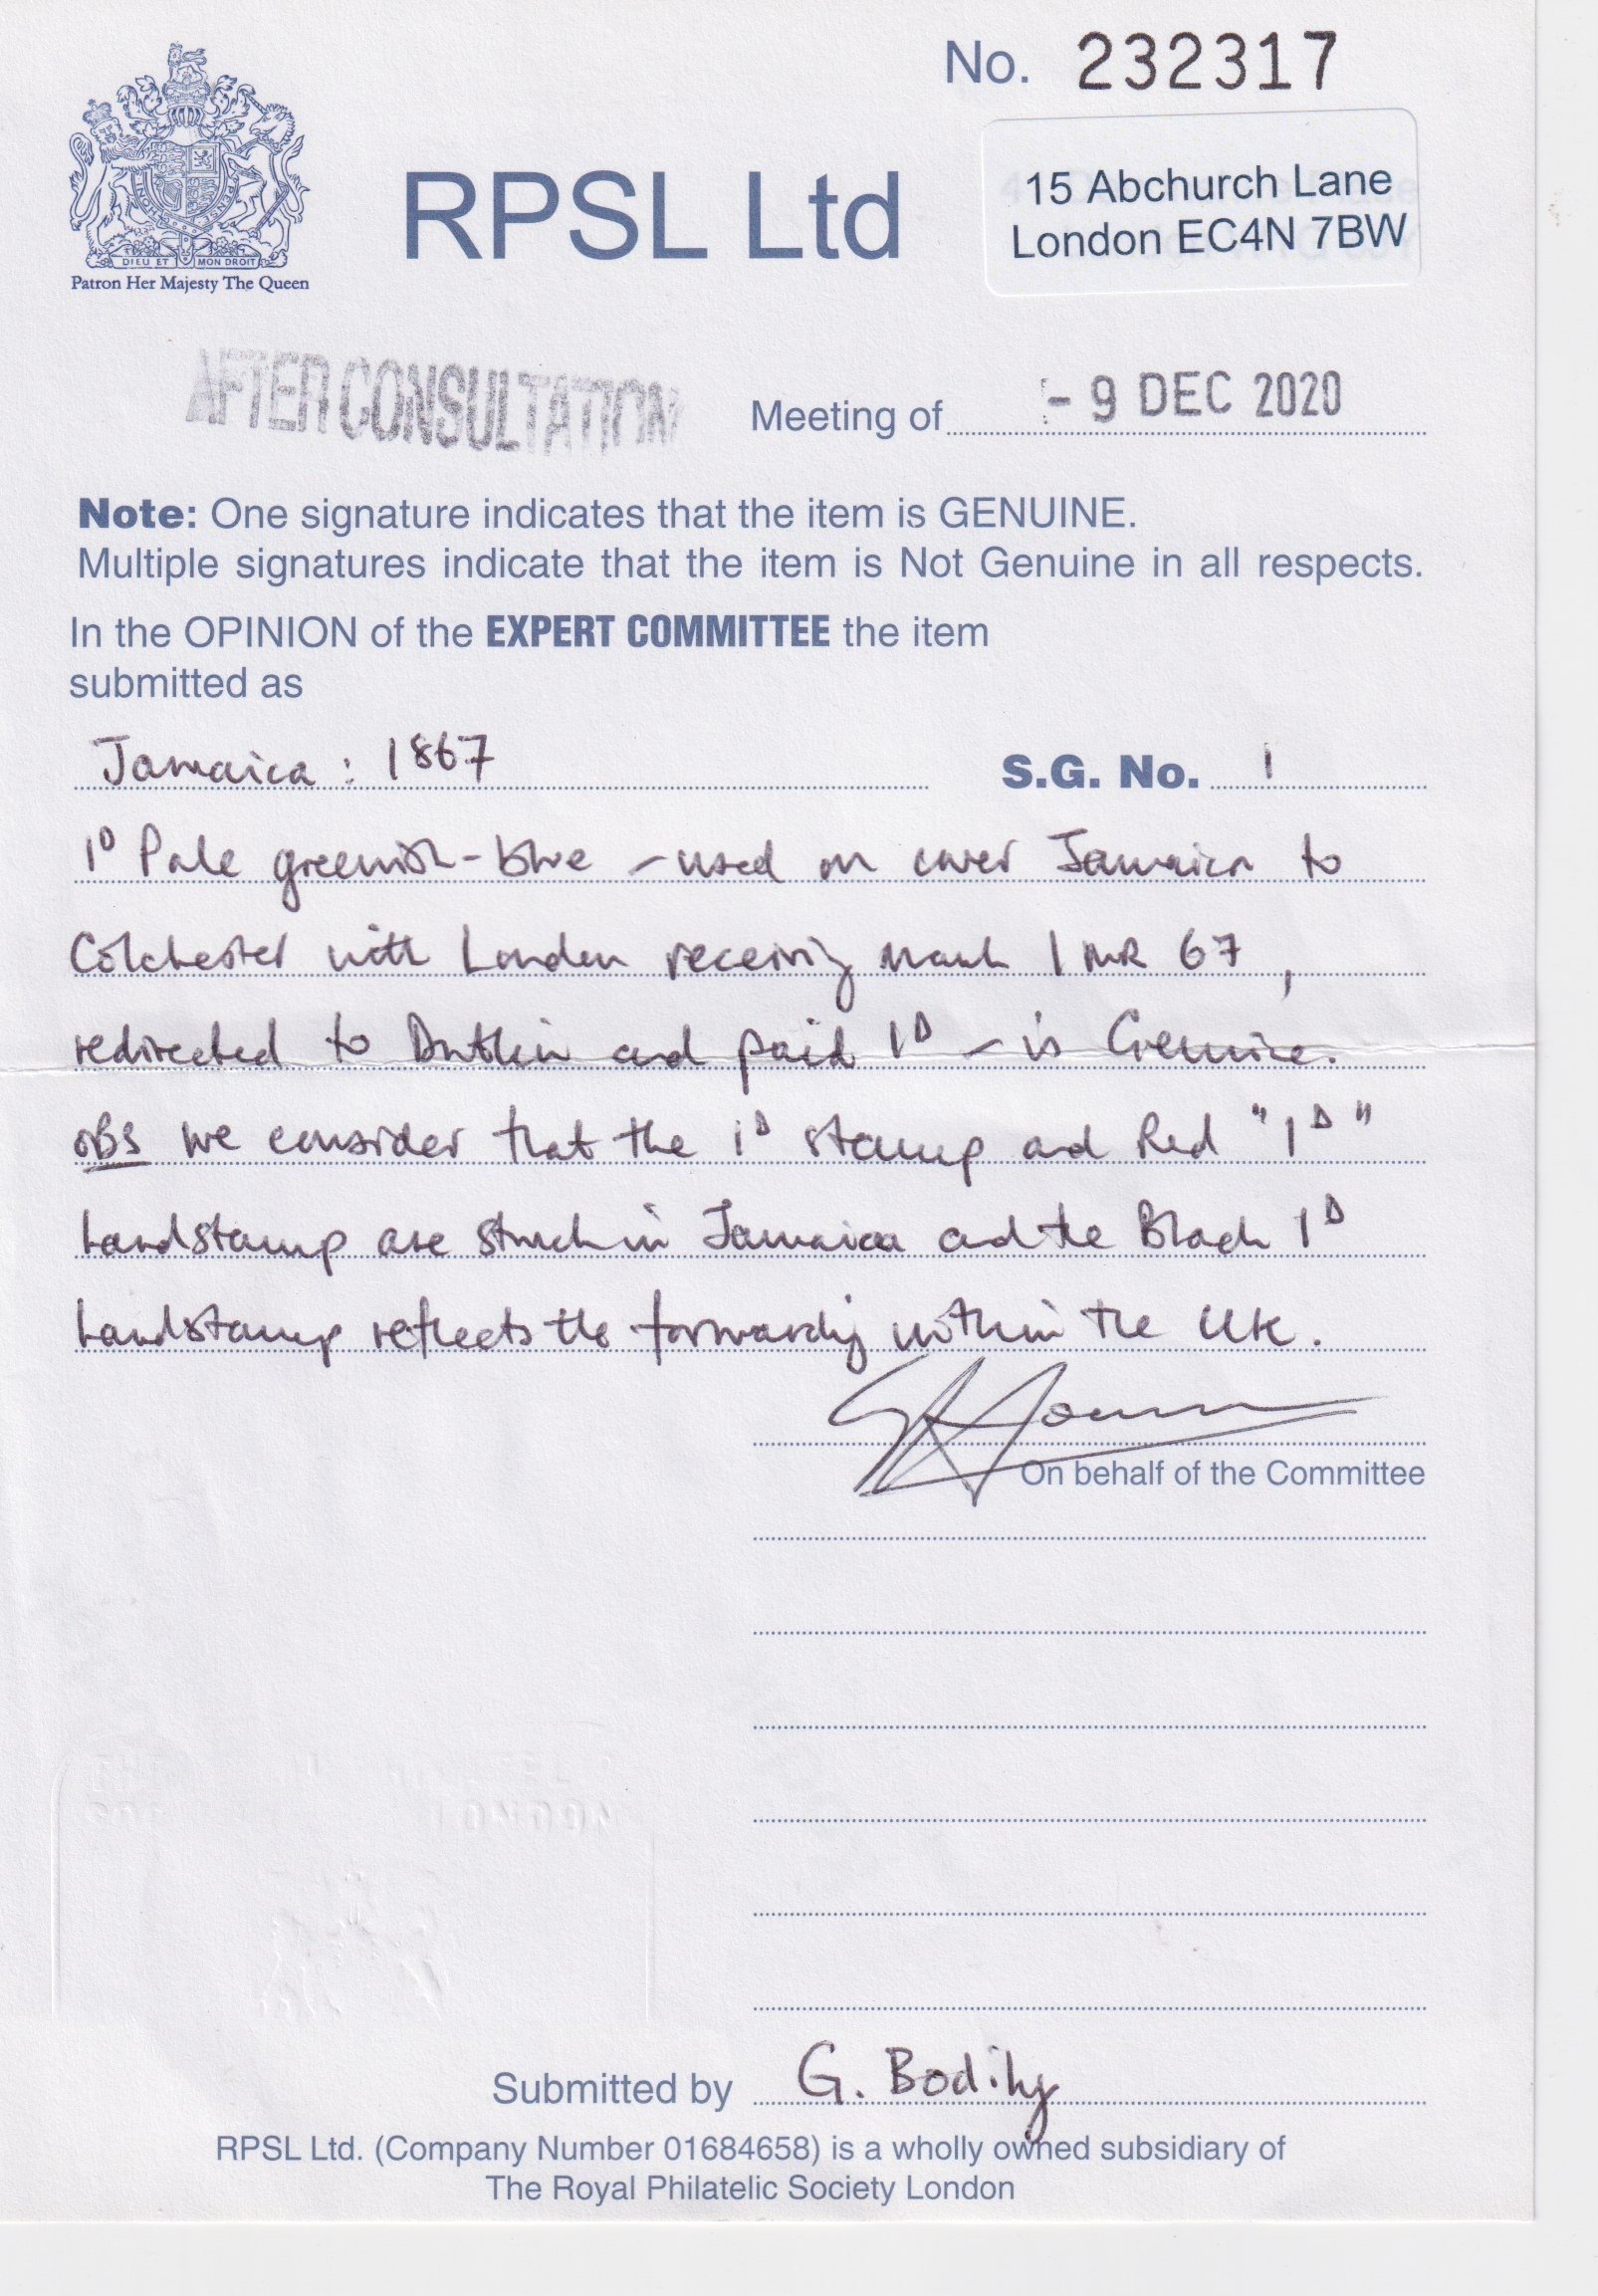 No. 232317
RPSL Ltd
15 Abchurch Lane
London EC4N 7BW
DIEU ET MON DROIT
Patron Her Majesty The Queen
AFTER CONSULTATION
Meeting of - 9 DEC 2020
Note: One signature indicates that the item is GENUINE.
Multiple signatures indicate that the item is Not Genuine in all respects.
In the OPINION of the EXPERT COMMITTEE the item
submitted as
Jamaica : 1867 S.G. No. 1
1D Pale greenish-blue - used on cover Jamaica to
Colchester with London receiving mark 1 MR 67,
redirected to Dublin and paid 1D - is Genuine.
OBS we consider that the 1D stamp and Red "1D"
handstamp are struck in Jamaica and the Black 1D
handstamp reflects the forwarding within the UK.
On behalf of the Committee
Submitted by G. Bodily
RPSL Ltd. (Company Number 01684658) is a wholly owned subsidiary of
The Royal Philatelic Society London